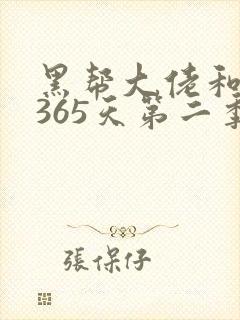 黑帮大佬和
365天第二季
張保仔